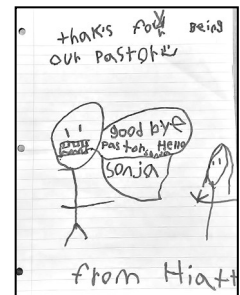 thaks for Being
our Pastor
good bye
Pastor. Hello
Sonja
Sonja
from Hiatt